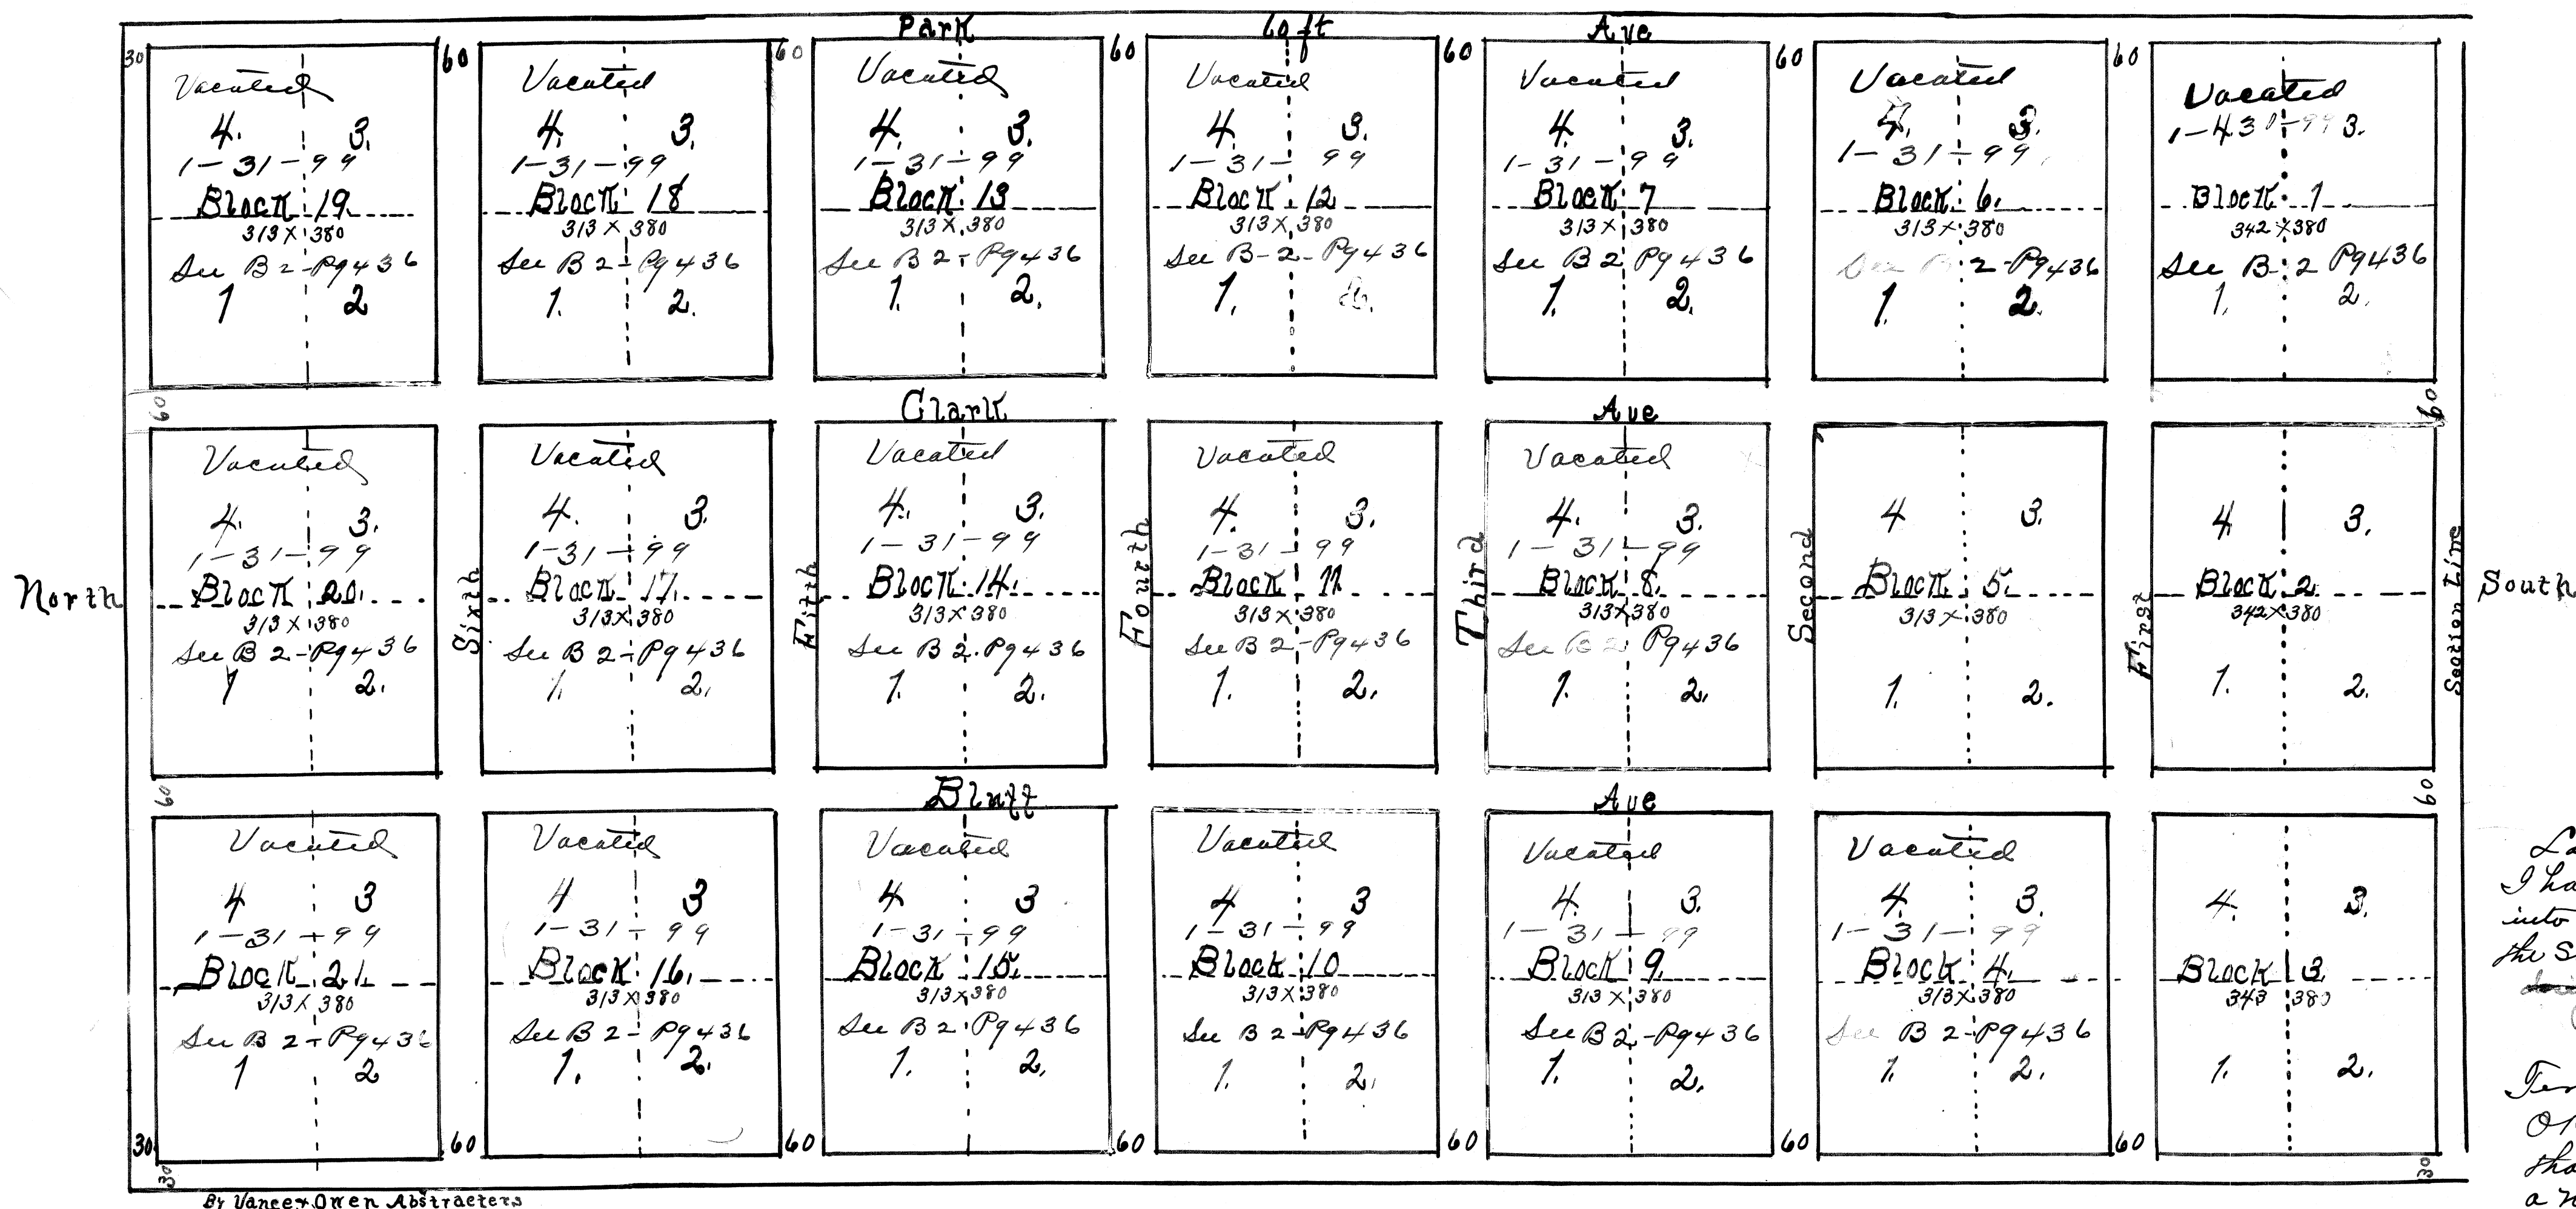 Park 60 ft Ave
30 60 60 60 60 60 60
Vacated
4. 3.
1-31-99
Block 19.
313 X 380
See B 2-Pg 436
1 2
Vacated
4. 3.
1-31-99
Block 18
313 X 380
See B 2-Pg 436
1. 2.
Vacated
4. 3.
1-31-99
Block 13
313 X 380
See B 2-Pg 436
1. 2.
Vacated
4. 3.
1-31-99
Block 12
313 X 380
See B-2-Pg 436
1. 2.
Vacated
4. 3.
1-31-99
Block 7
313 X 380
See B 2 Pg 436
1. 2.
Vacated
4. 3.
1-31-99
Block 6.
313 X 380
See B 2-Pg 436
1. 2.
Vacated
1-4 31-99 3.
Block 1
342 X 380
See B-2 Pg 436
1. 2.
60 Clark Ave 60
Vacated
4. 3.
1-31-99
Block 20.
313 X 380
See B 2-Pg 436
1 2.
Vacated
4. 3.
1-31-99
Block 17.
313 X 380
See B 2-Pg 436
1. 2.
Vacated
4. 3.
1-31-99
Block 14.
313 X 380
See B 2-Pg 436
1. 2.
Vacated
4. 3.
1-31-99
Block 11
313 X 380
See B 2-Pg 436
1. 2.
Vacated
4. 3.
1-31-99
Block 8.
313 X 380
See B 2 Pg 436
1. 2.
4 3.
Block 5.
313 X 380
1. 2.
4. 3.
Block 2.
342 X 380
1. 2.
North
Sixth
Fifth
Fourth
Third
Second
First
Section Line
South
60 Bluff Ave 60
Vacated
4 3
1-31-99
Block 21.
313 X 380
See B 2-Pg 436
1 2
Vacated
4 3
1-31-99
Block 16.
313 X 380
See B 2-Pg 436
1. 2.
Vacated
4 3
1-31-99
Block 15.
313 X 380
See B 2 Pg 436
1. 2.
Vacated
4 3
1-31-99
Block 10
313 X 380
See B 2-Pg 436
1. 2.
Vacated
4. 3.
1-31-99
Block 9.
313 X 380
See B 2-Pg 436
1. 2.
Vacated
4. 3.
1-31-99
Block 4.
313 X 380
See B 2-Pg 436
1. 2.
4. 3.
Block 3
343 380
1. 2.
30 60 60 60 60 60 60
30 30
By Vance & Owen Abstracters
I ha
into
the S
a n